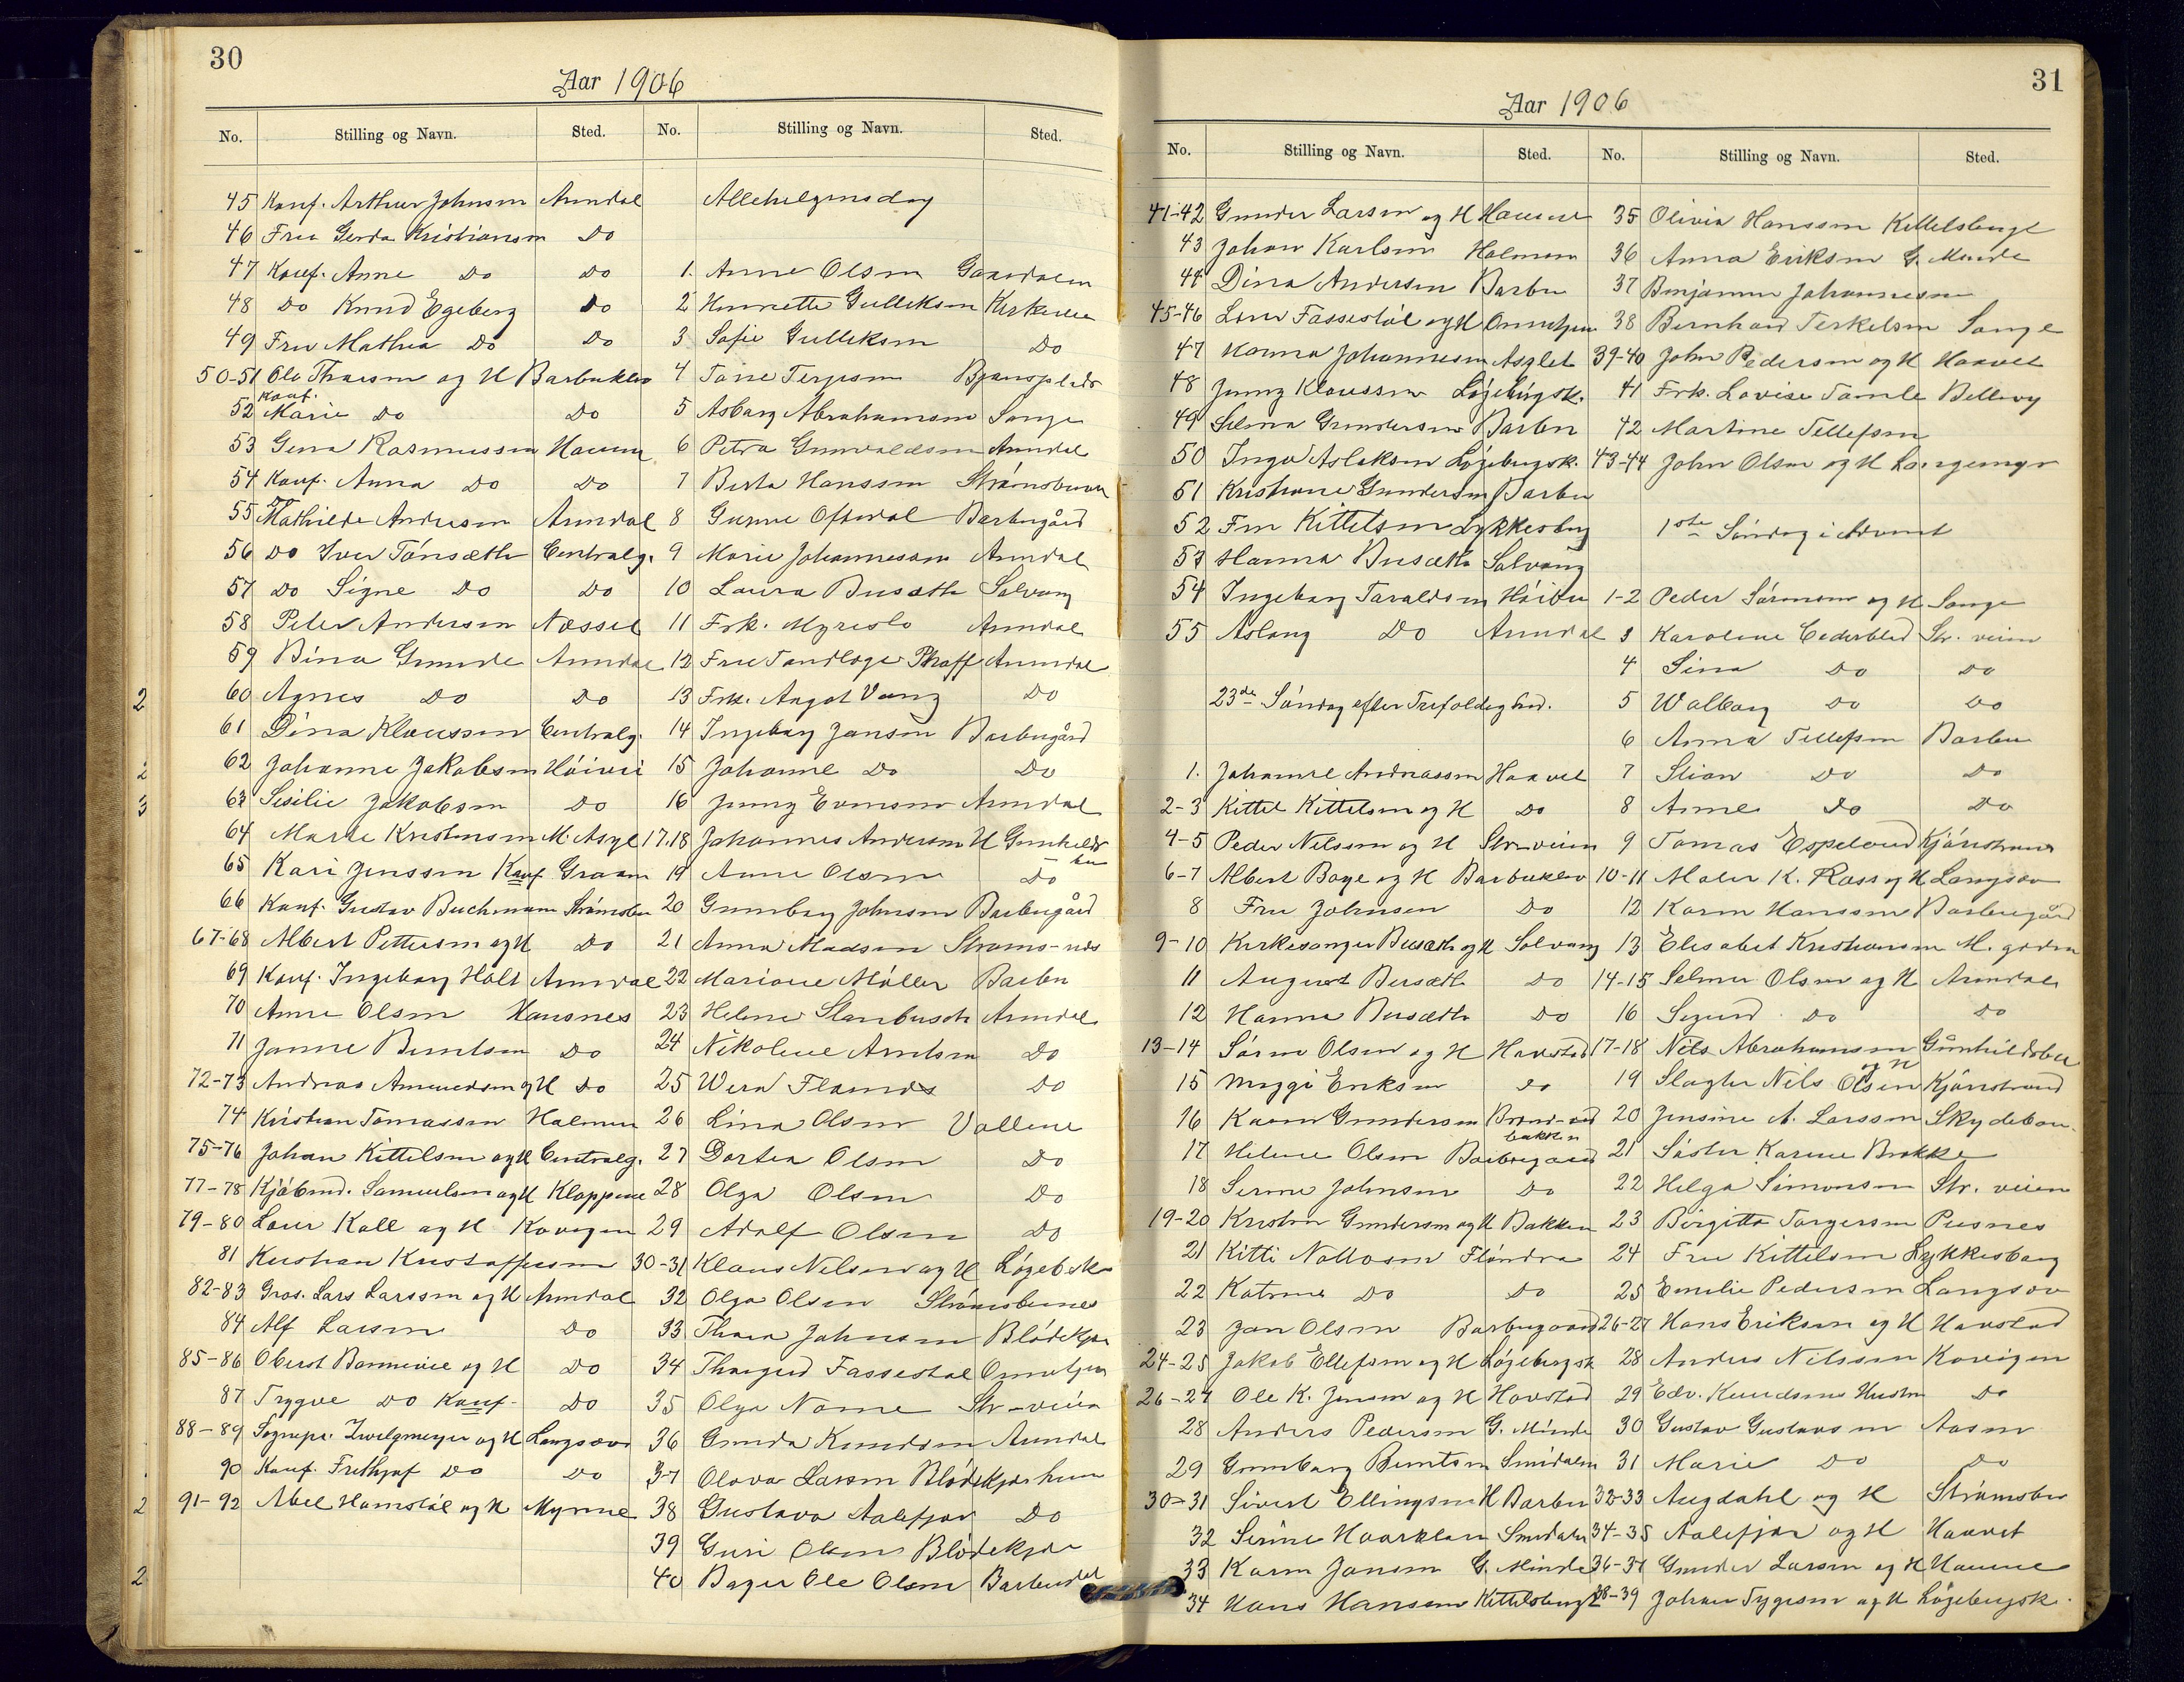 30
Aar 1906
No. Stilling og Navn. Sted.
45 Konf. Arthur Johnsen Arendal
46 Fru Gerda Kristiansen Do
47 Konf. Anne Do Do
48 Do Knud Egeberg Do
49 Fru Mathea Do Do
50-51 Ole Thorsen og H Barbuklev
52 Konf. Marie Do Do
53 Gena Rasmussen
54 Konf. Anna Do Do
55 Mathilde Andersen Arendal
56 Do Iver Tönsæth Centralg.
57 Do Signe Do Do
58 Peter Andersen Næsset
59 Bina Grunde Arendal
60 Agnes Do Do
61 Dina Klausson Centralg.
62 Johanne Jakobsen
63 Sesilie Jakobsen Do
64 Marte Kristensen M. Asyl
65 Kari Jenssen Konf
66 Konf. Gustav Buchmann Strömsbu
67-68 Albert Pettersen og H Do
69 Konf. Ingeborg Holt Arendal
70 Anne Olsen Hausnes
71 Janne Berntsen Do
72-73 Andreas Amundsen og H Do
74 Kristian Tomassen Holmen
75-76 Johan Kittelsen og H Centralg.
77-78 Kjöbmd. Samuelsen og H Kloppene
79-80 Kall og H
81 Kristian Kristoffersen
82-83 Gros. Lars Larssen og H Arendal
84 Alf Larsen Do
85-86 Oberst Bannevie og H Do
87 Trygve Do Konf. Do
88-89 Sognepr. Zwilgmeyer og H Langsæv
90 Konf. Frithjof Do Do
91-92 Abel Homstöl og H Myrene
2
2
3
2
2
No. Stilling og Navn. Sted.
Allehelgensdag
1. Anne Olsen
2 Henriette Gulleksen
3 Sofie Gulleksen Do
4 Tone Terjesen
5 Asborg Abrahamsen Songe
6 Petra Gunvaldsen Arendal
7 Berta Hanssen
8 Gunne Oftedal Barbugård
9 Marie Johannessen Arendal
10 Laura Busæth Solvang
11 Frk. Myreslo Arendal
12 Fru Tandlæge Phaff Arendal
13 Frk. Angot Vang Do
14 Ingeborg Jansen Barbugård
15 Johanne Do Do
16 Jenny Evensen Arendal
17.18 Johannes Andersen H Gunhildsbu
19 Anne Olsen Do
20 Gunborg Johnsen Barbugård
21 Anna Madsen
22 Mariane Möller Barbu
23 Helene Starbusch Arendal
24 Nikoline Arntsen Do
25 Wera Flamds Do
26 Lina Olsen Vollene
27 Dortea Olsen Do
28 Olga Olsen Do
29 Adolf Olsen Do
30-31 Klaus Nilsen og H
32 Olga Olsen
33 Thora Johnsen Blödekjær
34 Thorgerd Fassestöl
35 Olga Nome Str-veien
36 Gunda Knudsen Arendal
37 Olava Larsen Blödekjærhuen
38 Gustava Aalefjær Do
39 Guri Olsen Blödekjær
40 Bager Ole Olsen Barbudal
31
Aar 1906
No. Stilling og Navn. Sted.
41-42 Gunder Larsen og H
43 Johan Karlsen Holmen
44 Dina Andersen Barbu
45-46 Fassestöl og H
47 Hanna Johannesen Asylet
48 Jenny Klausson Löjebergsk.
49 Selma Gundersen Barbu
50 Inga Aslaksen Löjebergsk.
51 Kristiane Gundersen Barbu
52 Fru Kittelsen Lykkesborg
53 Hanna Busæth Solvang
54 Ingeborg Taraldsen
55 Aslaug Do Arendal
23de Söndag efter Trefoldighed.
1. Johanne Andreassen Haavet
2-3 Kittel Kittelsen og H Do
4-5 Peder Nilssen og H Str-veien
6-7 Albert Boye og H Barbuklev
8 Fru Johnsen Do
9-10 Kirkesanger Busæth og H Solvang
11 August Busæth Do
12 Hanna Busæth Do
13-14 Sören Olsen og H Havstad
15 Eriksen Do
16 Karen Gundersen Brænd-vidbakken
17 Helene Olsen Barbugaard
18 Serine Johnsen Do
19-20 Kristen Gundersen og H Bakken
21 Kitti Flöndra
22 Katrine Do Do
23 Jan Olsen Barbugaard
24-25 Jakob Ellefsen og H Löjebergsk
26-27 Ole K. Jensen og H Havstad
28 Anders Pedersen G. Minde
29 Gunborg Berntsen Smidalen
30-31 Sivert Ellingsen H Barbu
32 Serine Smidalen
33 Karen Jansen G. Minde
34 Hans Hansen Kittelsbergt
No. Stilling og Navn. Sted.
35 Olivia Hanssen Kittelsbergt
36 Anna Eriksen G. Minde
37 Benjamin Johannesen
38 Bernhard Terkelsen Songe
39-40 John Pedersen og H Haavet
41 Frk. Lovise Tamle Bellevy
42 Martine Tellefsen
43-44 John Olsen og H Longemyr
1ste Söndag i Advent
1-2 Peder Sörensen og H Songe
3 Karoline Cederblad Str. veien
4 Sina Do Do
5 Walborg Do Do
6 Anna Tellefsen Barbu
7 Stian Do Do
8 Anne Do Do
9 Tomas Espeland Kjönstrand
10-11 Maler K. Rass og H Langsæv
12 Karen Hanssen Barbugård
13 Elisabet Kristiansen
14-15 Selmer Olsen og H Arendal
16 Sigurd Do Do
17-18 Nils Abrahamsen og H Gunhildsbu
19 Slagter Nils Olsen Kjönstrand
20 Jensine A. Larssen Skydeban.
21 Söster Karine Brokke
22 Helga Simonsen Str. veien
23 Birgitte Torgersen Pusnes
24 Fru Kittelsen Lykkesborg
25 Emilie Pedersen Langsæv
26-27 Hans Eriksen og H Havstad
28 Anders Nilssen
29 Edv. Knudsens Hustru Do
30 Gustav Gustavsen Aasen
31 Marie Do Do
32-33 Augdahl og H Strömsbu
34-35 Aalefjær og H Haavet
36-37 Gunder Larsen og H
38-39 Johan Tygesen og H Löjebergsk.